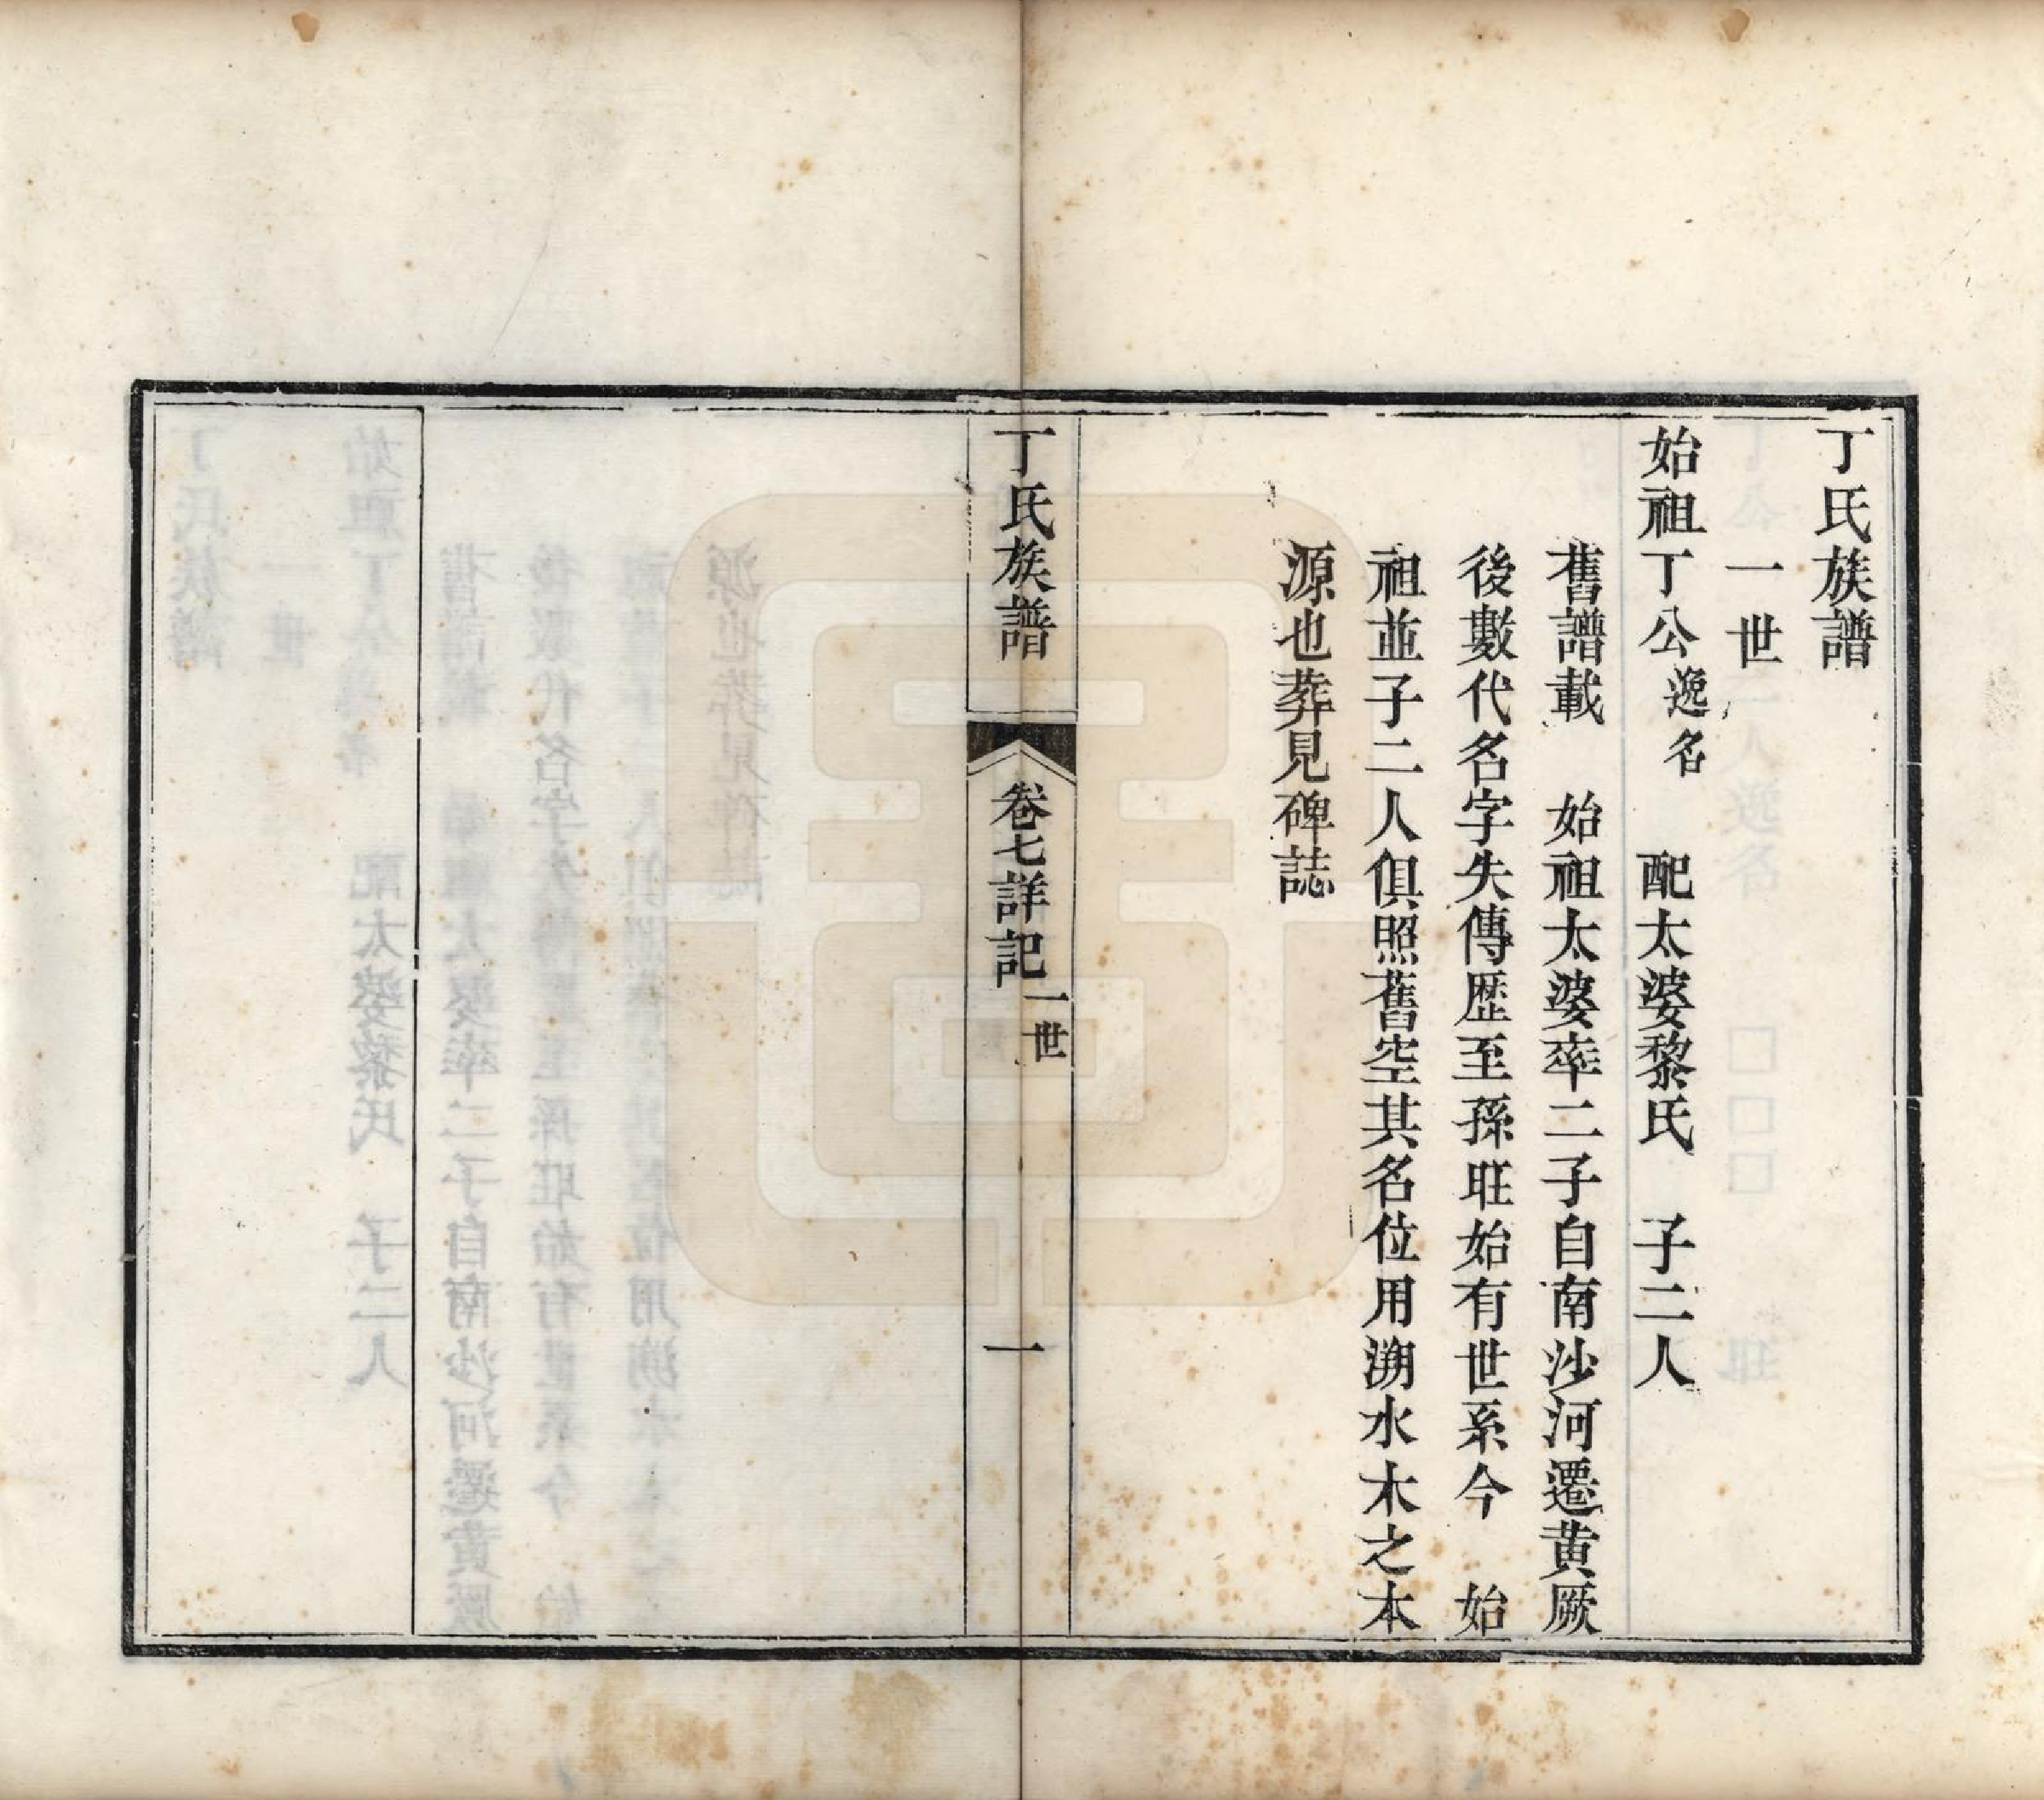 丁氏族譜
一世
始祖丁公逸名　配太婆黎氏　子二人
舊譜載　始祖太婆率二子自南沙河遷黄厥
後數代名字失傳歴至孫旺始有世系今　始
祖並子二人俱照舊空其名位用溯水木之本
源也葬見碑誌
丁氏族譜　卷七詳記　一世　一